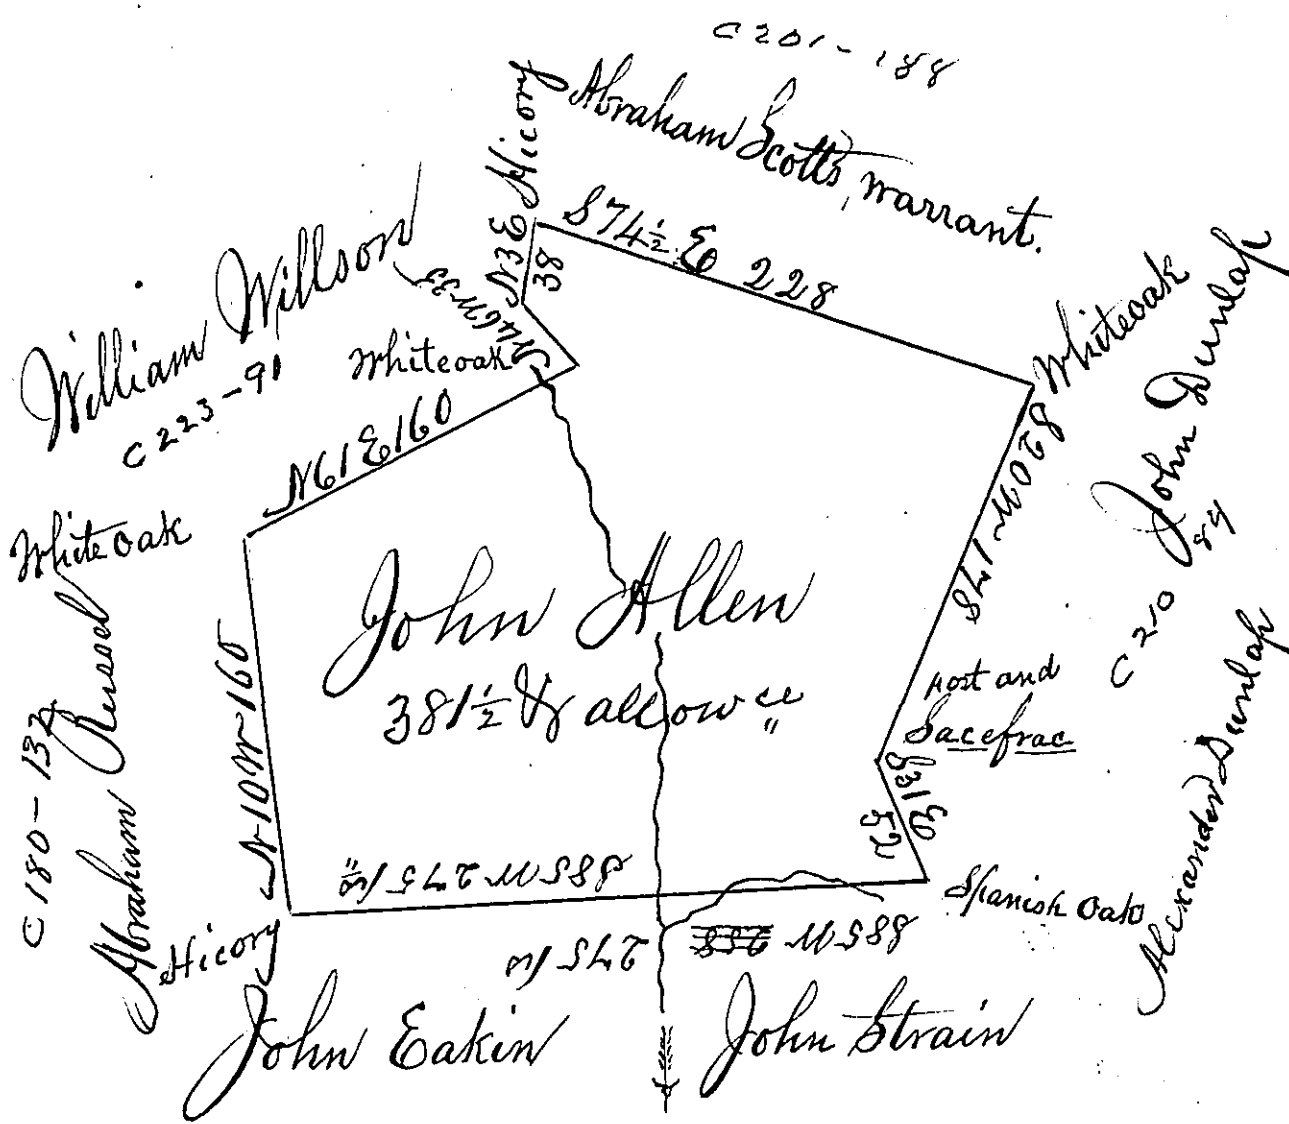 C 201-188
Abraham Scotts, warrant.
Hicory
N3E
38
S74½ E 228
William Willson
C 223-91
N46W 33
Whiteoak
N61E160
Whiteoak
John Dunlap
C 210 84
S20W 178
White Oak
Abraham Russel
C 180-134
N10W 160
John Allen
381½ & allowce
post and
Sacefrac
S31E
52
Alexander Dunlap
S85W 275
Spanish Oak
S85W
275
Hicory
John Eakin
John Strain